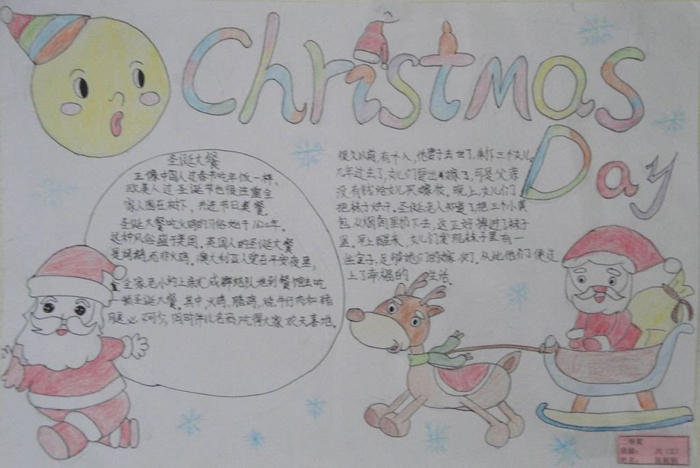 Christmas
Day
圣诞大餐
正像中国人过春节吃年饭一样，
欧美人过圣诞节也很注重全
家人围在树下，共进节日美餐。
圣诞大餐吃火鸡的习俗始于1620年。
这种风俗盛于美国。英国人的圣诞大餐
是烤鹅，而非火鸡。澳大利亚人爱在平安夜里，
全家老小约上亲友成群结队地到餐馆去吃
一顿圣诞大餐，其中，火鸡、腊鸡、烧牛仔肉和猪
腿必不可少，同时伴以名酒，吃得大家欢天喜地。
很久以前，有个人，他妻子去世了，剩下三个女儿，
几年过去了，女儿们要出嫁了，可是父亲
没有钱给女儿买嫁妆。晚上，女儿们
把袜子，圣诞老人知道了，把三个小黄
包从烟囱里扔下去，这正好掉进了袜子
里，早上醒来，女儿们发现袜子里有一
些金子，足够她们的嫁妆了。从此他们便过
上了幸福的生活。
二等奖
班级： 六（2）